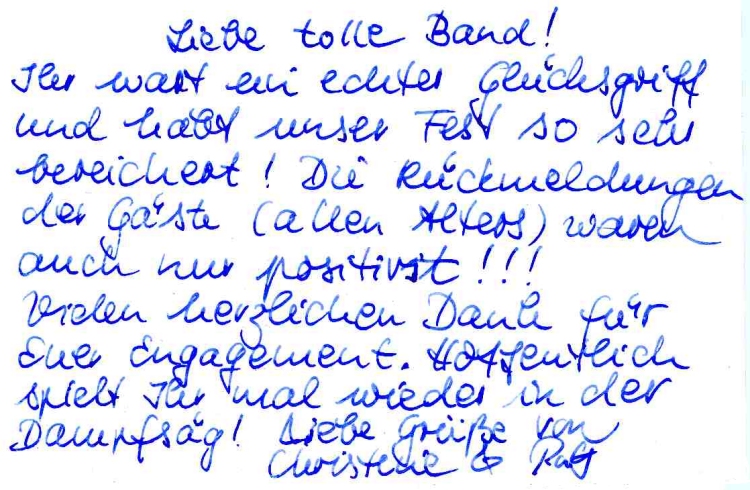 Liebe tolle Band!
Ihr wart ein echter Glücksgriff
und habt unser Fest so sehr
bereichert! Die Rückmeldungen
der Gäste (allen Alters) waren
auch nur positivst!!!
Vielen herzlichen Dank für
Euer Engagement. Hoffentlich
spielt Ihr mal wieder in der
Dampfsäg! Liebe Grüße von
Christine & Ralf